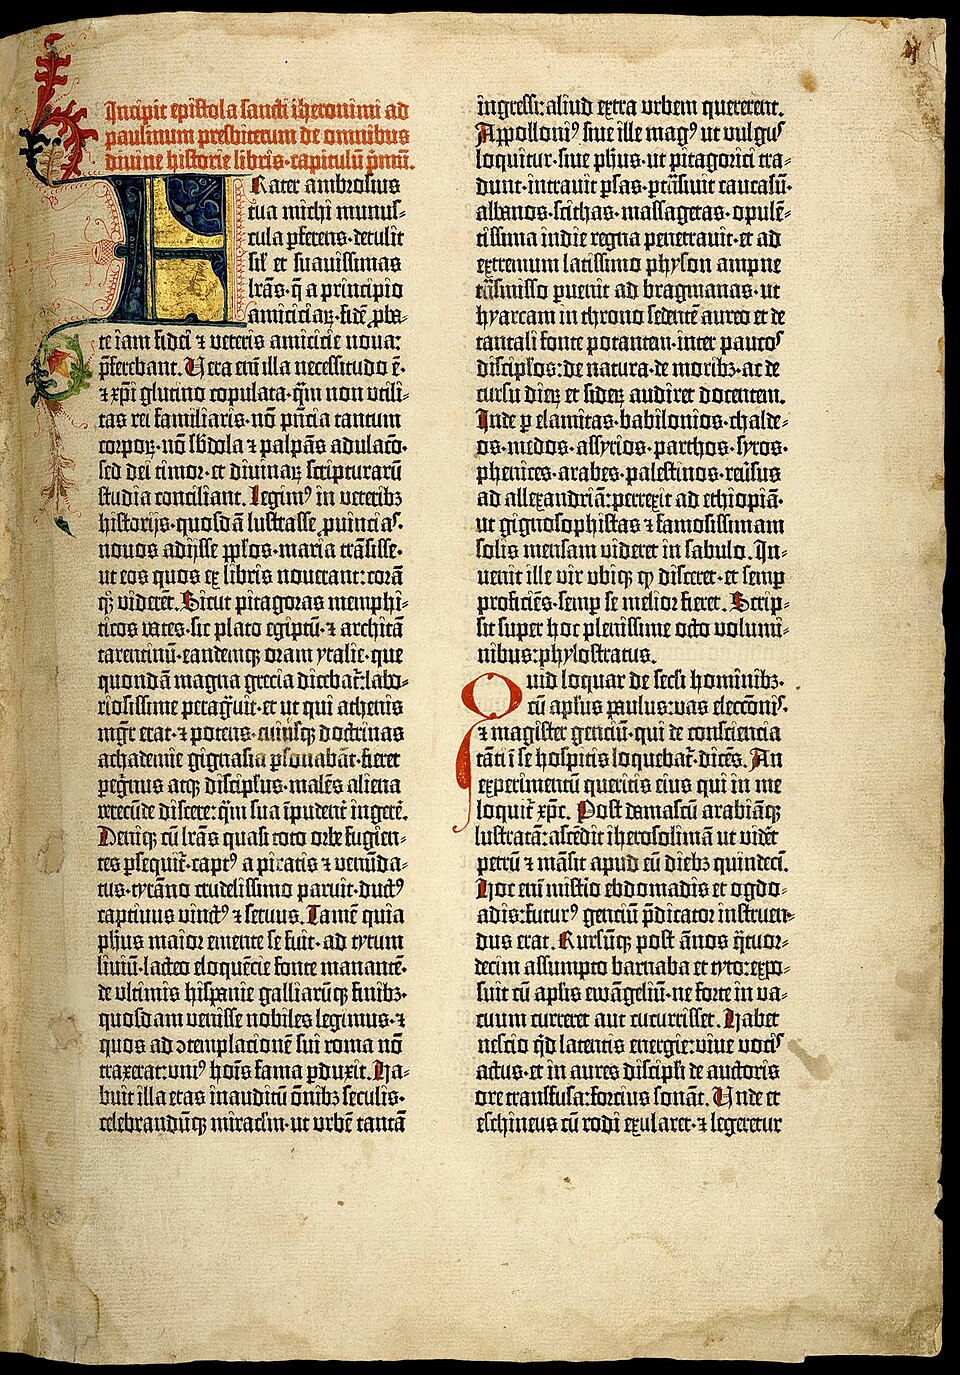 Incipit epistola sancti iheronimi ad
paulinum presbiterum de omnibus
divine historie libris·capitulū p̄mū.
Frater ambrosius
tua michi munus-
cula ꝑferens·detulit
sil̄ et suavissimas
lr̄as·q̄ a principio
amiciciaꝝ·fidē ꝓba-
te iam fidei ⁊ veteris amicicie nova:
p̄ferebant. Vera em̄ illa necessitudo ē·
⁊ xp̄i glutino copulata·qm̄ non utili-
tas rei familiaris·nō pn̄cia tantum
corpoꝝ·nō sb̄dola ⁊ palpās adulac̄o·
sed dei timor·et divinaꝝ scripturarū
studia conciliant. Legimꝰ in veteribꝫ
historijs·quosdā lustrasse ꝓuincias·
novos adijsse ppl̄os·maria trāsisse·
ut eos quos ex libris noverant: corā
qꝫ viderēt. Sicut pitagoras memphi-
ticos vates·sic plato egiptū·⁊ architā
tarentinū·eandemqꝫ oram ytalie·que
quondā magna grecia dicebat̄: labo-
riosissime peragͣuit·et ut qui athenis
mgr̄ erat·⁊ potens·cuiusqꝫ doctrinas
achademie gignasia ꝑsonabāt·fieret
peg̓nus atqꝫ discipl̄us·malēs aliena
verecūde discere: qm̄ sua īpudent̓ ingerē.
Deniqꝫ cū lr̄as quasi toto orbe fugien-
tes ꝑsequit̄·captꝰ a piratis ⁊ venūda-
tus·tyrāno crudelissimo paruit·ductꝰ
captivus vinctꝰ ⁊ servus. Tamē quia
ph̄us maior emente se fuit·ad tytum
liviū·lacteo eloquēcie fonte manantē·
de ultimis hispanie galliarūqꝫ finibꝫ·
quosdam venisse nobiles legimus·⁊
quos ad ↄtemplacionē sui roma nō
traxerat: uniꝰ hoīs fama ꝑduxit. Ha-
buit illa etas inauditū ōnibꝫ seculis·
celebrandūqꝫ miraclm̄·ut urbē tantā
ingressi: aliud extra urbem quererent.
Appolloniꝰ sive ille magꝰ ut vulgus
loquitur·sive ph̄us·ut pitagorici tra-
dunt·intravit ꝑsas·ꝑtͣsivit caucasū·
albanos·scithas·massagetas·opulē-
tissima indie regna penetravit·et ad
extremum latissimo physon ampne
tͣsmisso ꝑuenit ad bragmanas·ut
hyarcam in throno sedentē aureo et de
tantali fonte potantem·inter paucos
discipl̄os: de natura·de moribꝫ·ac de
cursu dieꝝ et sideꝝ audiret docentem.
Inde ꝑ elamitas·babilonios·chalde-
os·medos·assyrios·parthos·syros·
phenices·arabes·palestinos·rev̓sus
ad allexandriā: perrexit ad ethiopiā·
ut gignosophistas ⁊ famosissimam
solis mensam videret in sabulo. In-
venit ille vir ubiqꝫ qͦ disceret·et semꝑ
proficiēs·semꝑ se melior fieret. Scrip-
sit super hoc plenissime octo volumi-
nibus: phylostratus.
Quid loquar de secli hominibꝫ·
cū apl̄us paulus: vas elecc̄onis·
⁊ magister genciū·qui de consciencia
tāti ī se hospitis loquebat̄·dicēs. An
experimentū queritis eius qui in me
loquit̄ xp̄c. Post damascū arabiāqꝫ
lustratā: ascēdit iherosolimā ut vidēt
petrū ⁊ māsit apud eū diebꝫ quindecī.
Hoc em̄ mistio ebdomadis et ogdo-
adis: futurꝰ genciū p̄dicator instruen-
dus erat. Rursūqꝫ post ānos qͣtuor-
decim assumpto barnaba et tyto: expo-
suit cū apl̄is ewāgeliū·ne forte in va-
cuum curreret aut cucurrisset. Habet
nescio qͥd latentis energie: vive vocis
actus·et in aures discipl̄i de auctoris
ore transfusa: forcius sonāt. Unde et
eschineus cū rodi exularet·⁊ legeretur